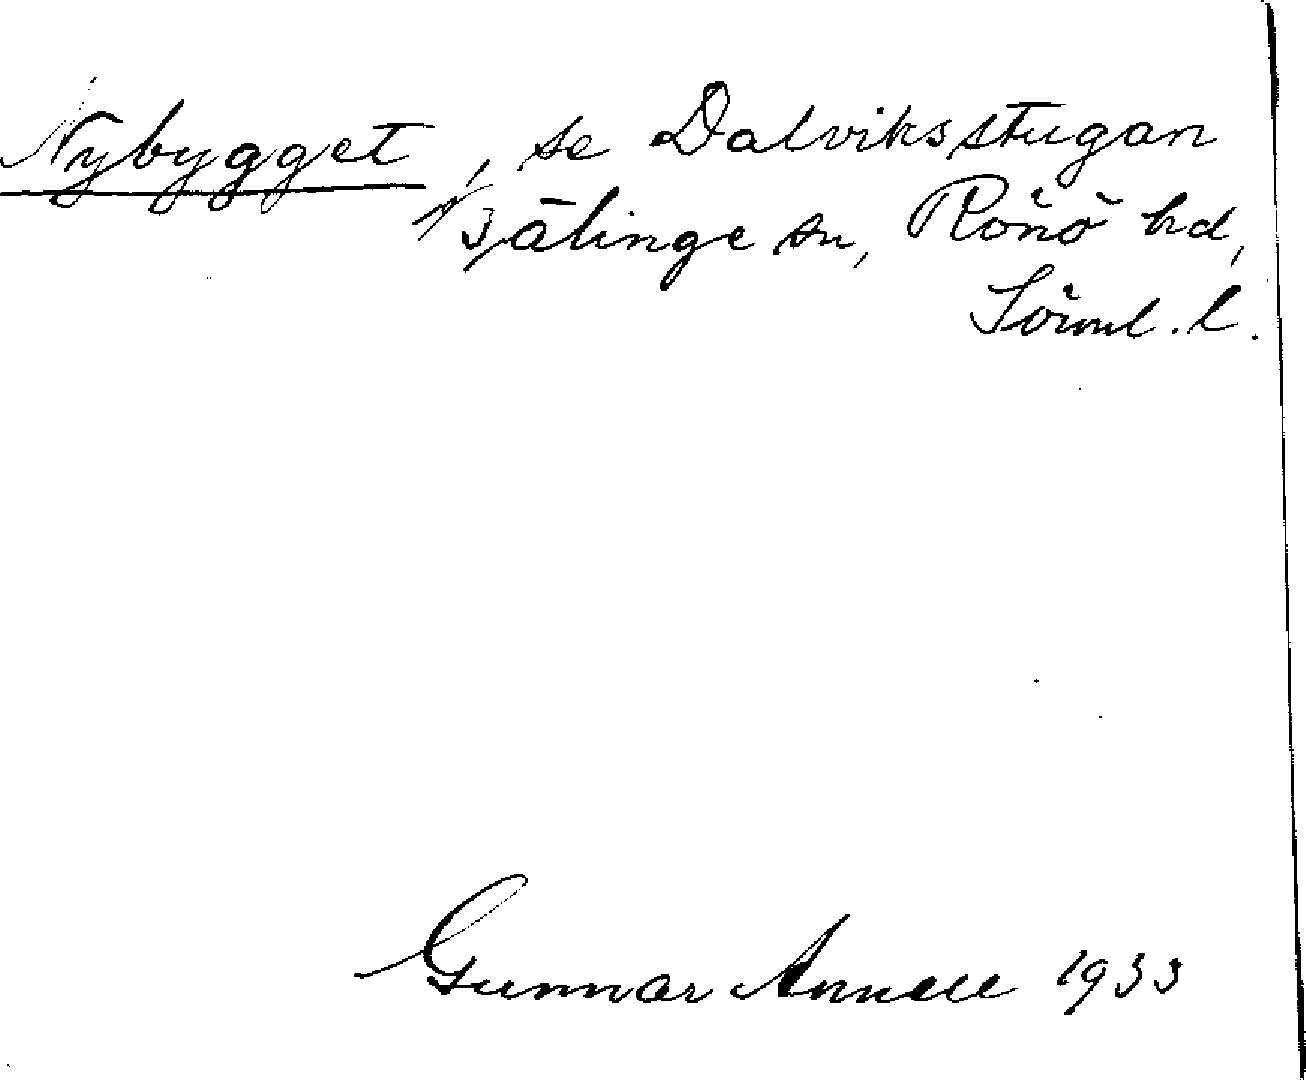 Nybygget, se Dalviksstugan
Bälinge sn, Rönö hd,
Sörml. l.
Gunnar Annell 1933